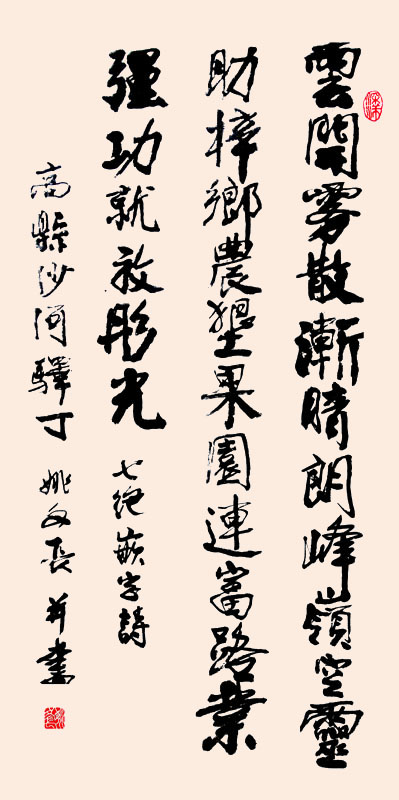 雲開雾散漸晴朗峰嶺空靈
助梓鄉農墾果園連富路業
强功就放彤光 七絕嵌字詩
高縣沙河驛丁 姚文長并書